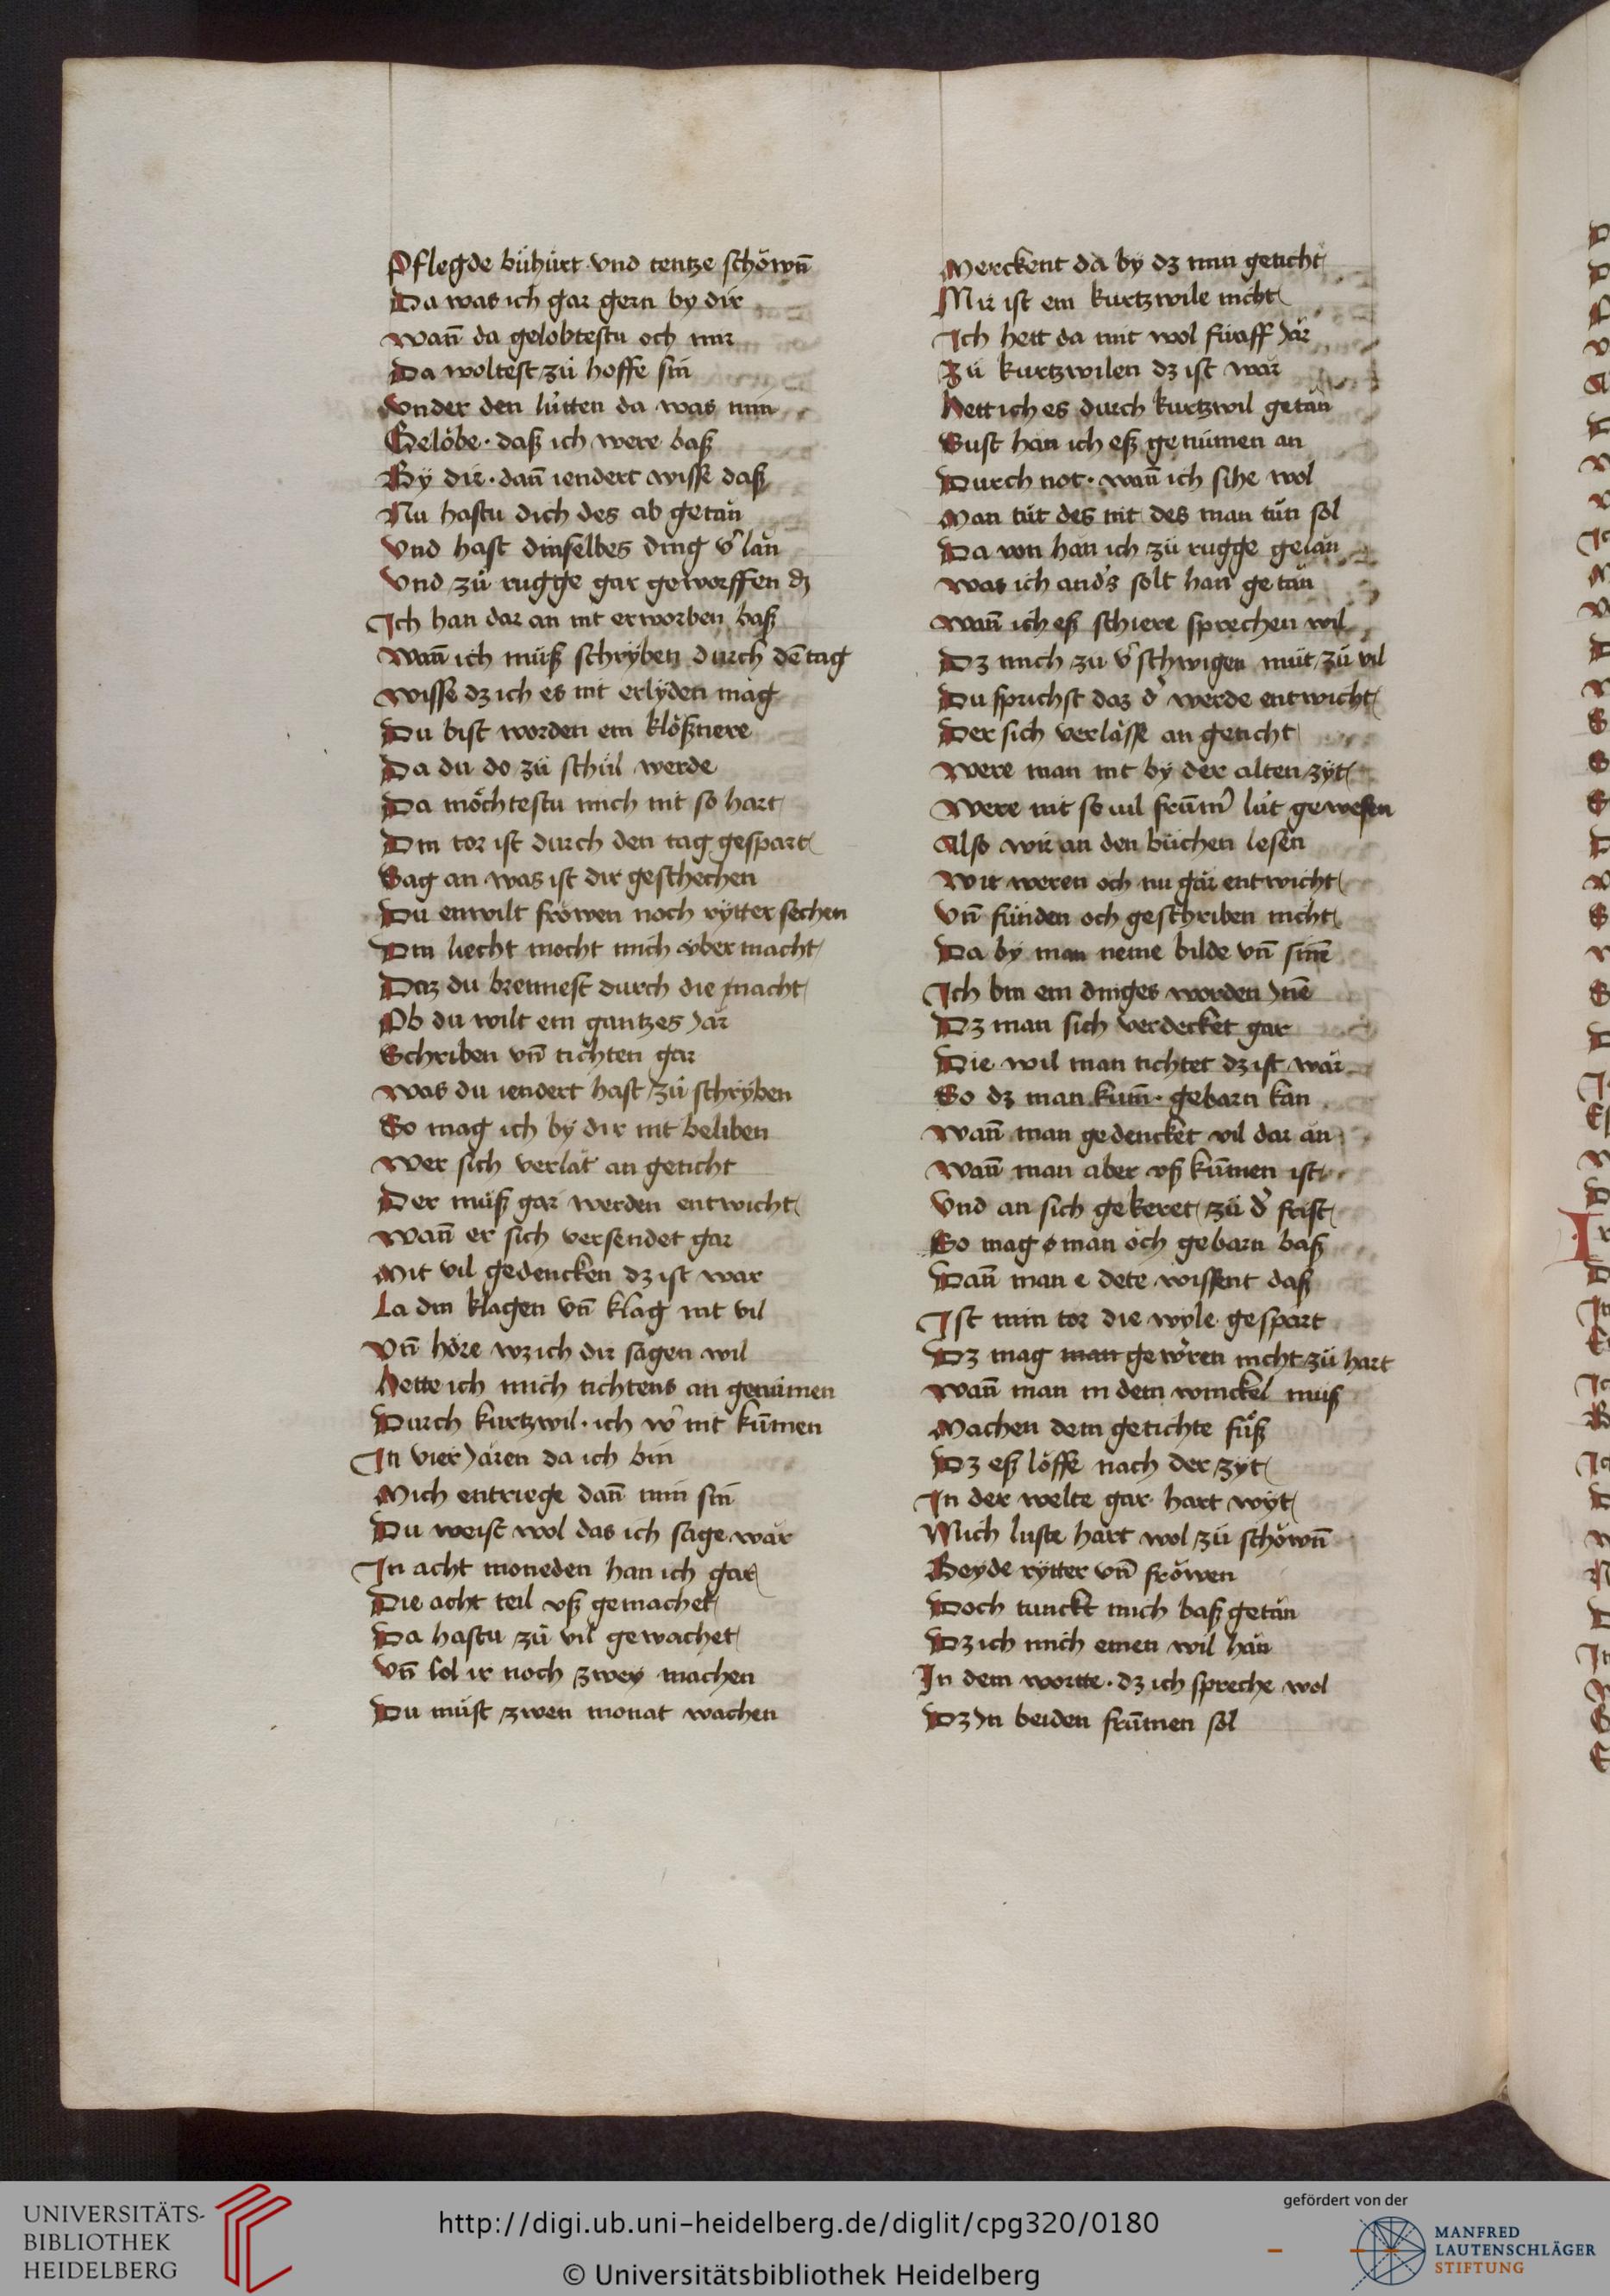 Pflegde bühürt vnd tentze schöwn̄
Da was ich gar gern by dir
wann̄ da gelobtestu och mir
Da woltest zü hoffe sin
vnder den lütten da was min
Gelöbe · daß ich were baß
By dir · dann̄ iendert wisse daß
Nu hastu dich des ab getän
Vnd hast dinselbes ding v̾ län
Vnd zü rugge gar geworffen dz
Ich han dar an nit erworben baß
Wann̄ ich müß schryben durch dē tag
wisse dz ich es nit erlyden mag
Du bist worden ein klößnere
Da du do zü schül werde
Da möchtestu mich nit so hart
Din tor ist durch den tag gespart
Sag an was ist dir geschechen
Du enwilt fröwen noch rytter sechen
Din liecht mocht mich vber macht
Daz du brennest durch die nacht
Ob du wilt ein gantzes Jär
Schriben vn̄ tichten gar
was du iendert hast zü schryben
So mag ich by dir nit beliben
wer sich verlät an geticht
Der müß gar werden entwicht
wann̄ er sich versendet gar
Mit vil gedencken dz ist war
La din klagen vn̄ klag nit vil
Vn̄ höre wz ich dir sagen wil
Hette ich mich tichtens an genümen
Durch kurtzwil · ich w̾ nit kūmen
In vier Jären da ich bin
Mich entriege dann̄ min sin
Du weist wol das ich sage wär
In acht moneden han ich gar
Die acht teil vß gemachet
Da hastu zü vil gewachet
Vn̄ sol ir noch zwey machen
Du müst zwen monat wachen
Merckent da by dz min geticht
Mir ist ein kurtzwile nicht
Ich hett da mit wol fünff Jär
Zü kurtzwilen dz ist wär
Hett ich es durch kurtzwil getän
Sust han ich eß genümen an
Durch not · wann̄ ich sihe wol
Man tüt des nit des man tün sol
Da von hän ich zü rugge gelän
was ich and̾s solt han getän
wann̄ ich eß schiere sprechen wil
Dz mich zu v̾ schwigen müt zü vil
Du sprichst daz d̾ werde entwicht
Der sich verlässe an geticht
were man nit by der alten zyt
Were nit so vil frūm̄ lüt gewesen
Also wir an den büchen lesen
Wir weren och nu gär entwicht
Vn̄ fünden och geschriben nicht
Da by man neme bilde vn̄ sinē
Ich bin ein dinges worden Jnē
Dz man sich verdecket gar
Die wil man tichtet dz ist wär
So dz man kum̄ · gebarn kan
wann̄ man gedencket vil dar an
wann̄ man aber vß kūmen ist
Vnd an sich gekeret zü d̾ frist
So mag man och gebarn baß
Dann̄ man e dete wissent daß
Ist min tor die wyle gespart
Dz mag man gew̾ren nicht zü hart
wann̄ man in dem winckel müß
Machen dem getichte füß
Dz eß löffe nach der zyt
In der welte gar hart wyt
Mich luste hart wol zü schöwn̄
Beyde rytter vn̄ fröwen
Doch tunckt mich baß getän
Dz ich mich einen wil hän
In dem wortte · dz ich spreche wol
Dz Jn beiden frūmen sol
UNIVERSITÄTS-
BIBLIOTHEK
HEIDELBERG
http://digi.ub.uni-heidelberg.de/diglit/cpg320/0180
© Universitätsbibliothek Heidelberg
gefördert von der
MANFRED
LAUTENSCHLÄGER
STIFTUNG